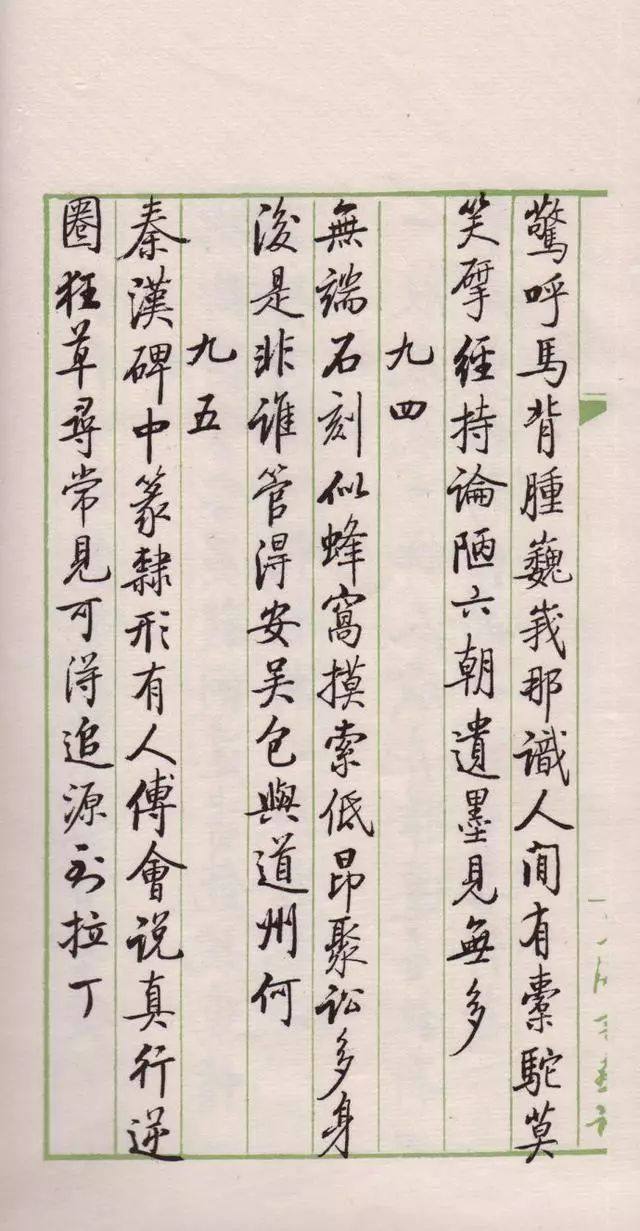 驚呼馬背腫巍峩那識人間有橐駝莫
笑揅經持論陋六朝遺墨見無多
九四
無端石刻似蜂窩摸索低昂聚訟多身
後是非誰管得安吴包與道州何
九五
秦漢碑中篆隸形有人傅會説真行逆
圈狂草尋常見可得追源到拉丁